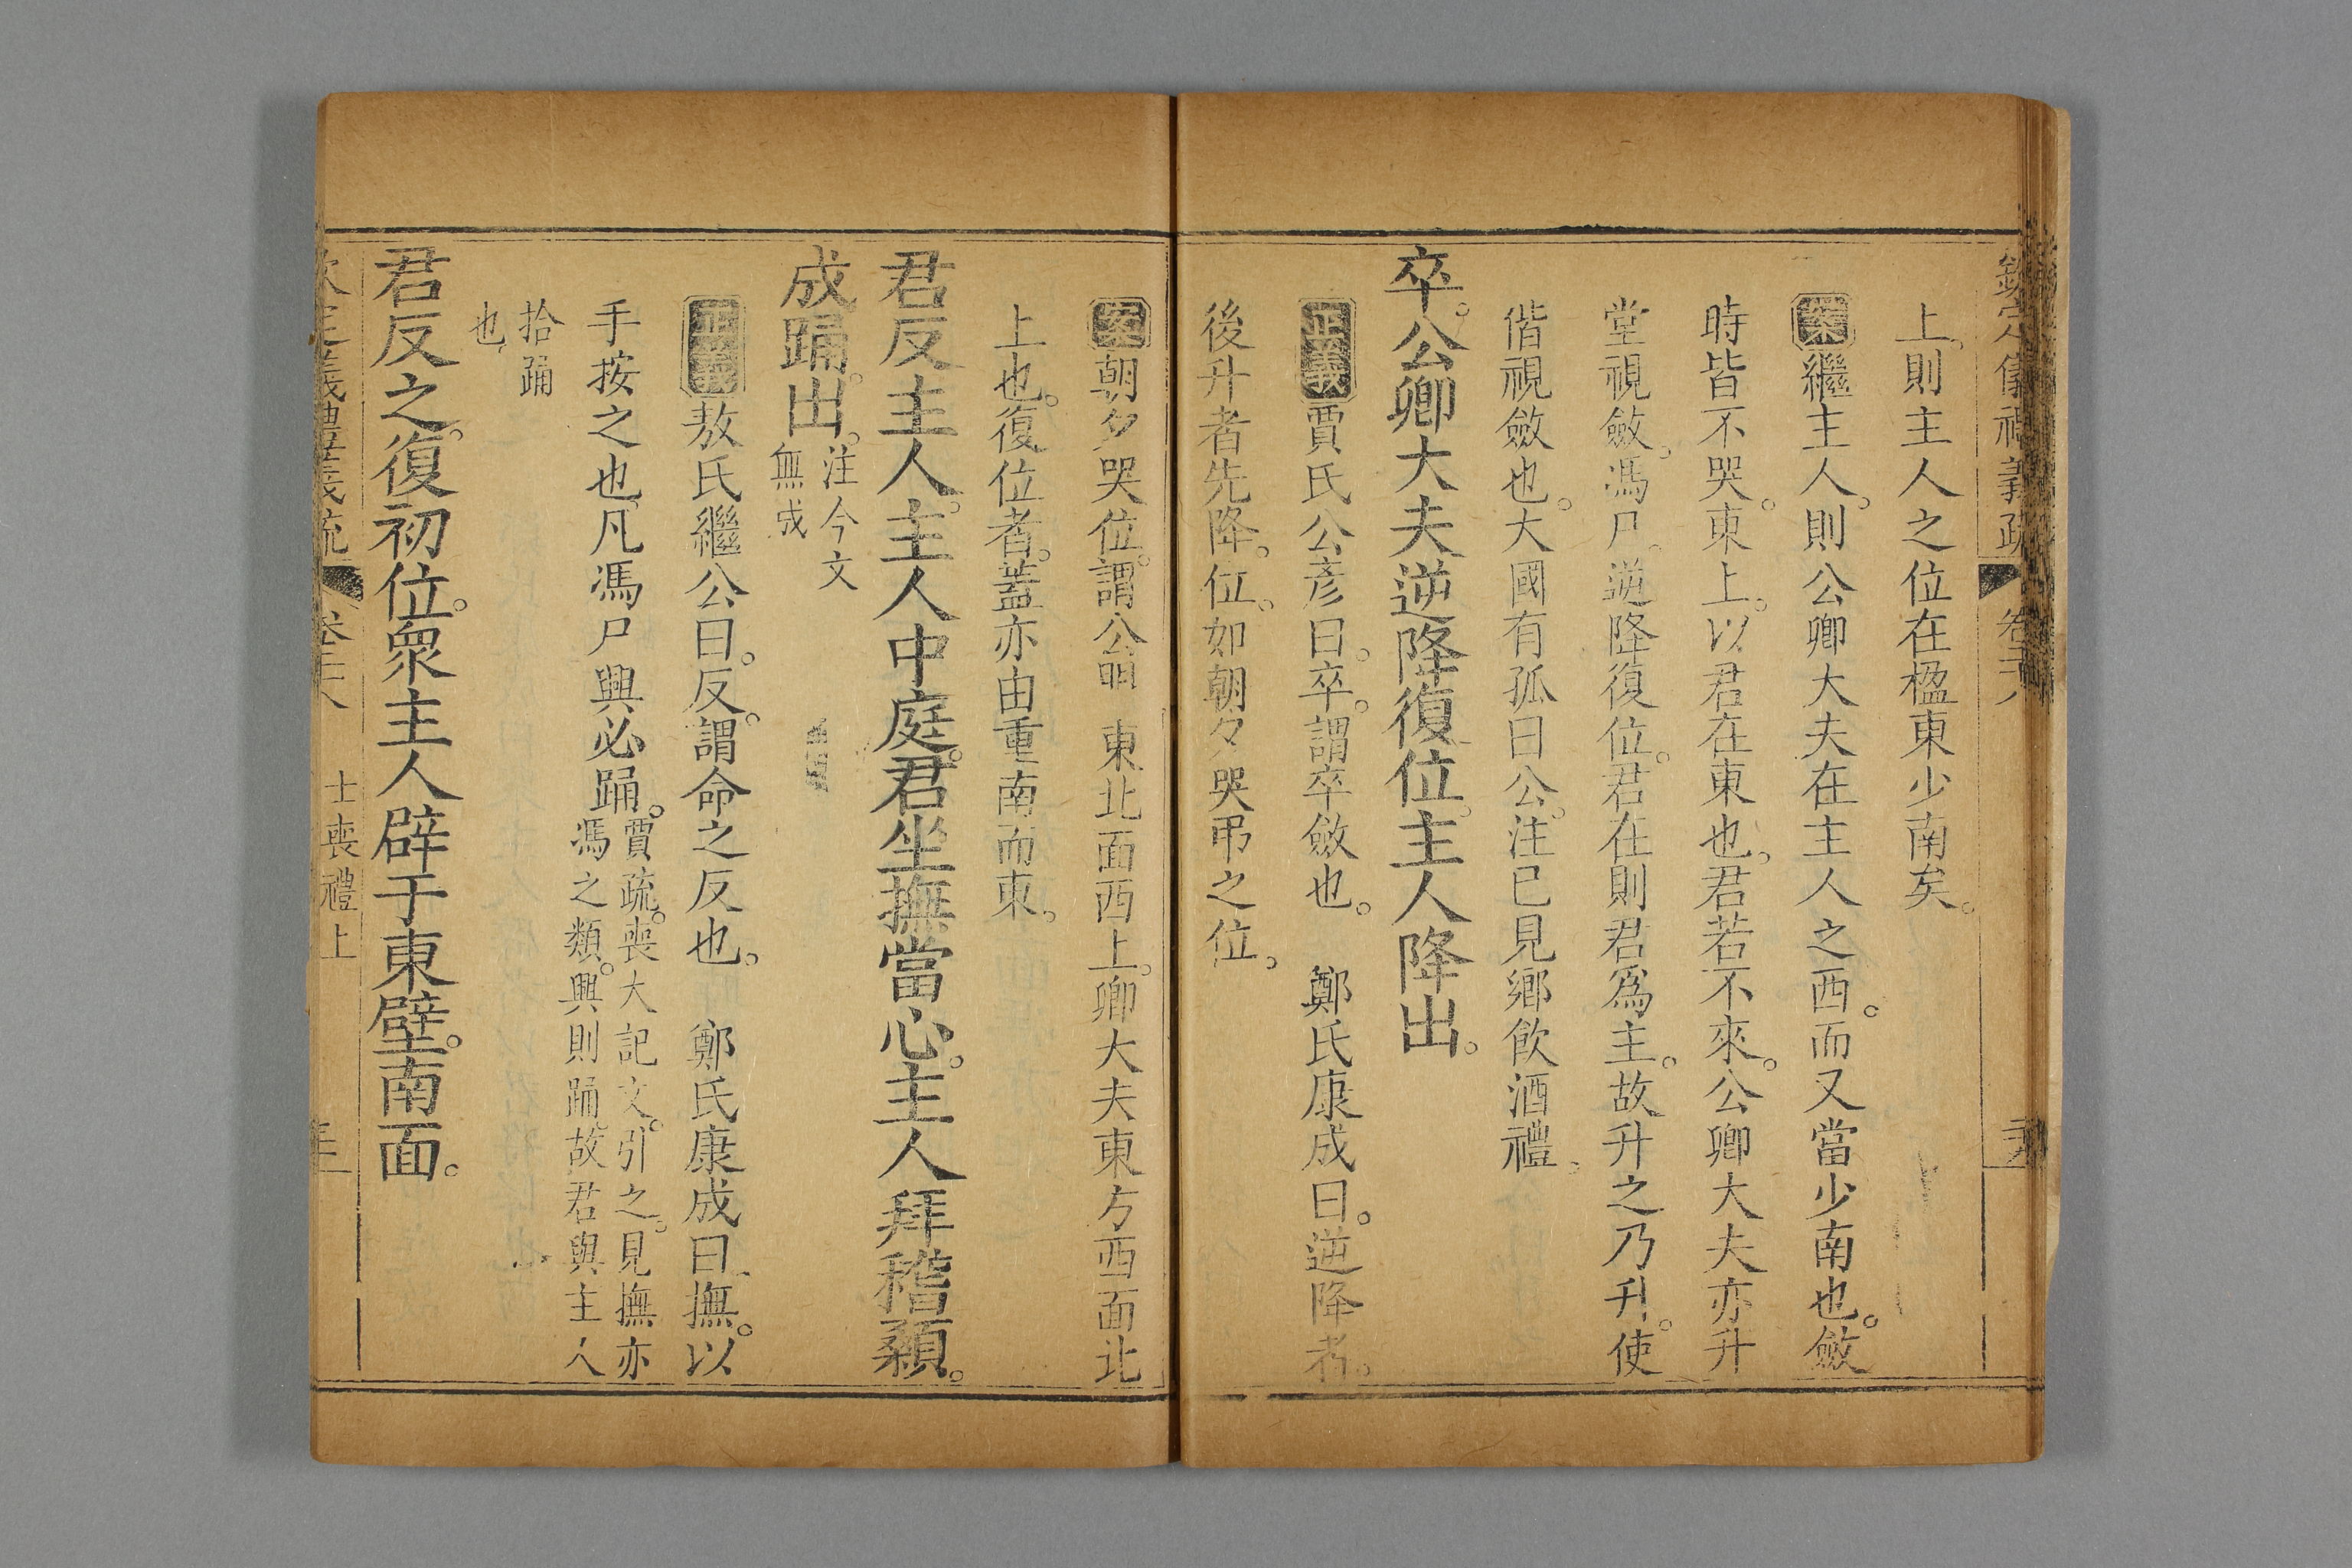 欽定儀禮義疏 卷二十八
上則主人之位在楹東少南矣。
案繼主人。則公卿大夫在主人之西。而又當少南也。斂
時皆不哭。東上。以君在東也。君若不來。公卿大夫亦升
堂視斂。馮尸。逆降復位。君在則君爲主。故升之乃升。使
偕視斂也。大國有孤曰公。注已見鄉飲酒禮。
卒。公卿大夫逆降復位。主人降出。
正義賈氏公彥曰。卒。謂卒斂也。 鄭氏康成曰。逆降者。
後升者先降。位。如朝夕哭弔之位。
案朝夕哭位。謂公門東北面西上。卿大夫東方西面北
上也。復位者。蓋亦由重南而東。
君反主人。主人中庭。君坐撫當心。主人拜稽顙。
成踊。出。注今文
無成
正義敖氏繼公曰。反。謂命之反也。 鄭氏康成曰撫。以
手按之也。凡馮尸興必踊。賈疏。喪大記文。引之。見撫亦
馮之類。興則踊。故君與主人
拾踊
也。
君反之。復初位。衆主人辟于東壁。南面。
欽定儀禮義疏 卷二十八 士喪禮上